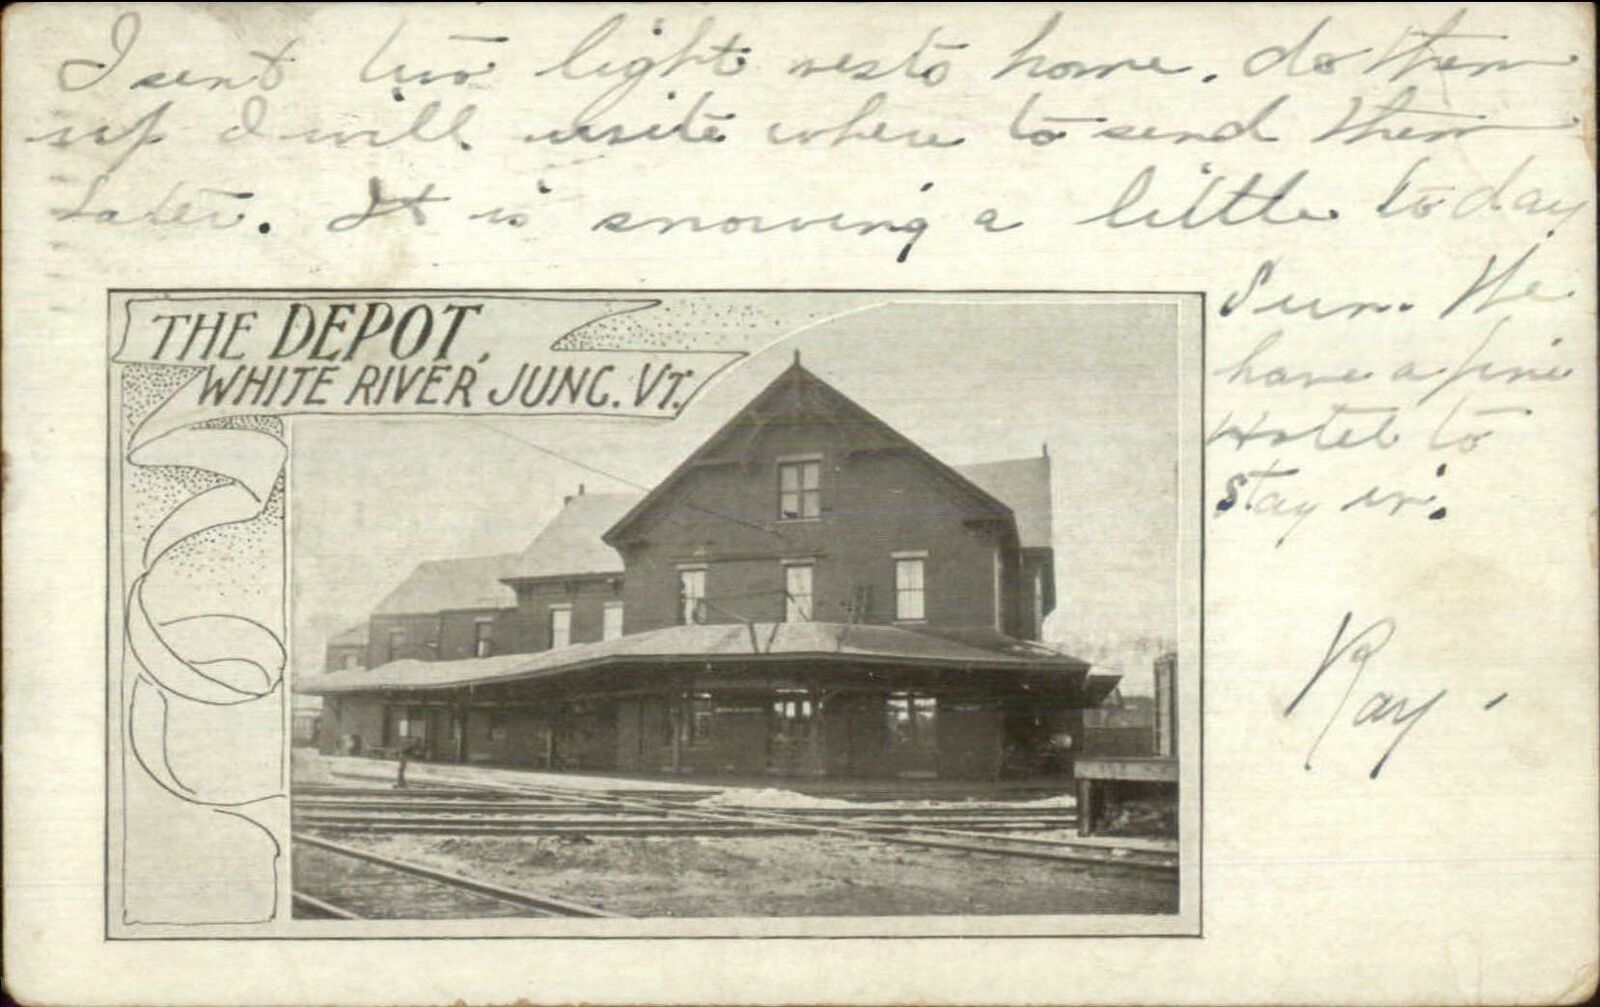 I sent two light vests home. do them
up I will write where to send them
later. It is snowing a little to day
Sun. We
have a fine
Hotel to
stay in.
Ray.
THE DEPOT,
WHITE RIVER JUNC. VT.